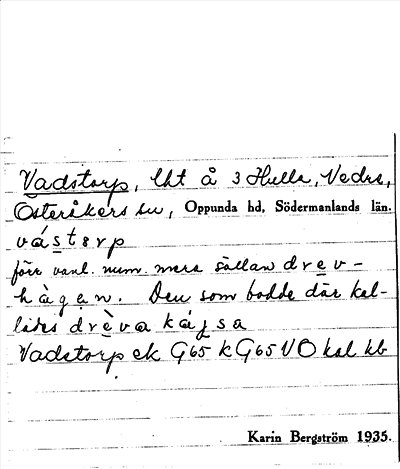 Vadstorp, lht å 3 Hulla, Vedra,
Österåkers sn, Oppunda hd, Södermanlands län.
vástərp
förr vanl. num. mera sällan drev-
hàgen. Den som bodde där kal-
lades drèva kájsa
Vadstorp ek G65 k G65 VO ksl kb
Karin Bergström 1935.